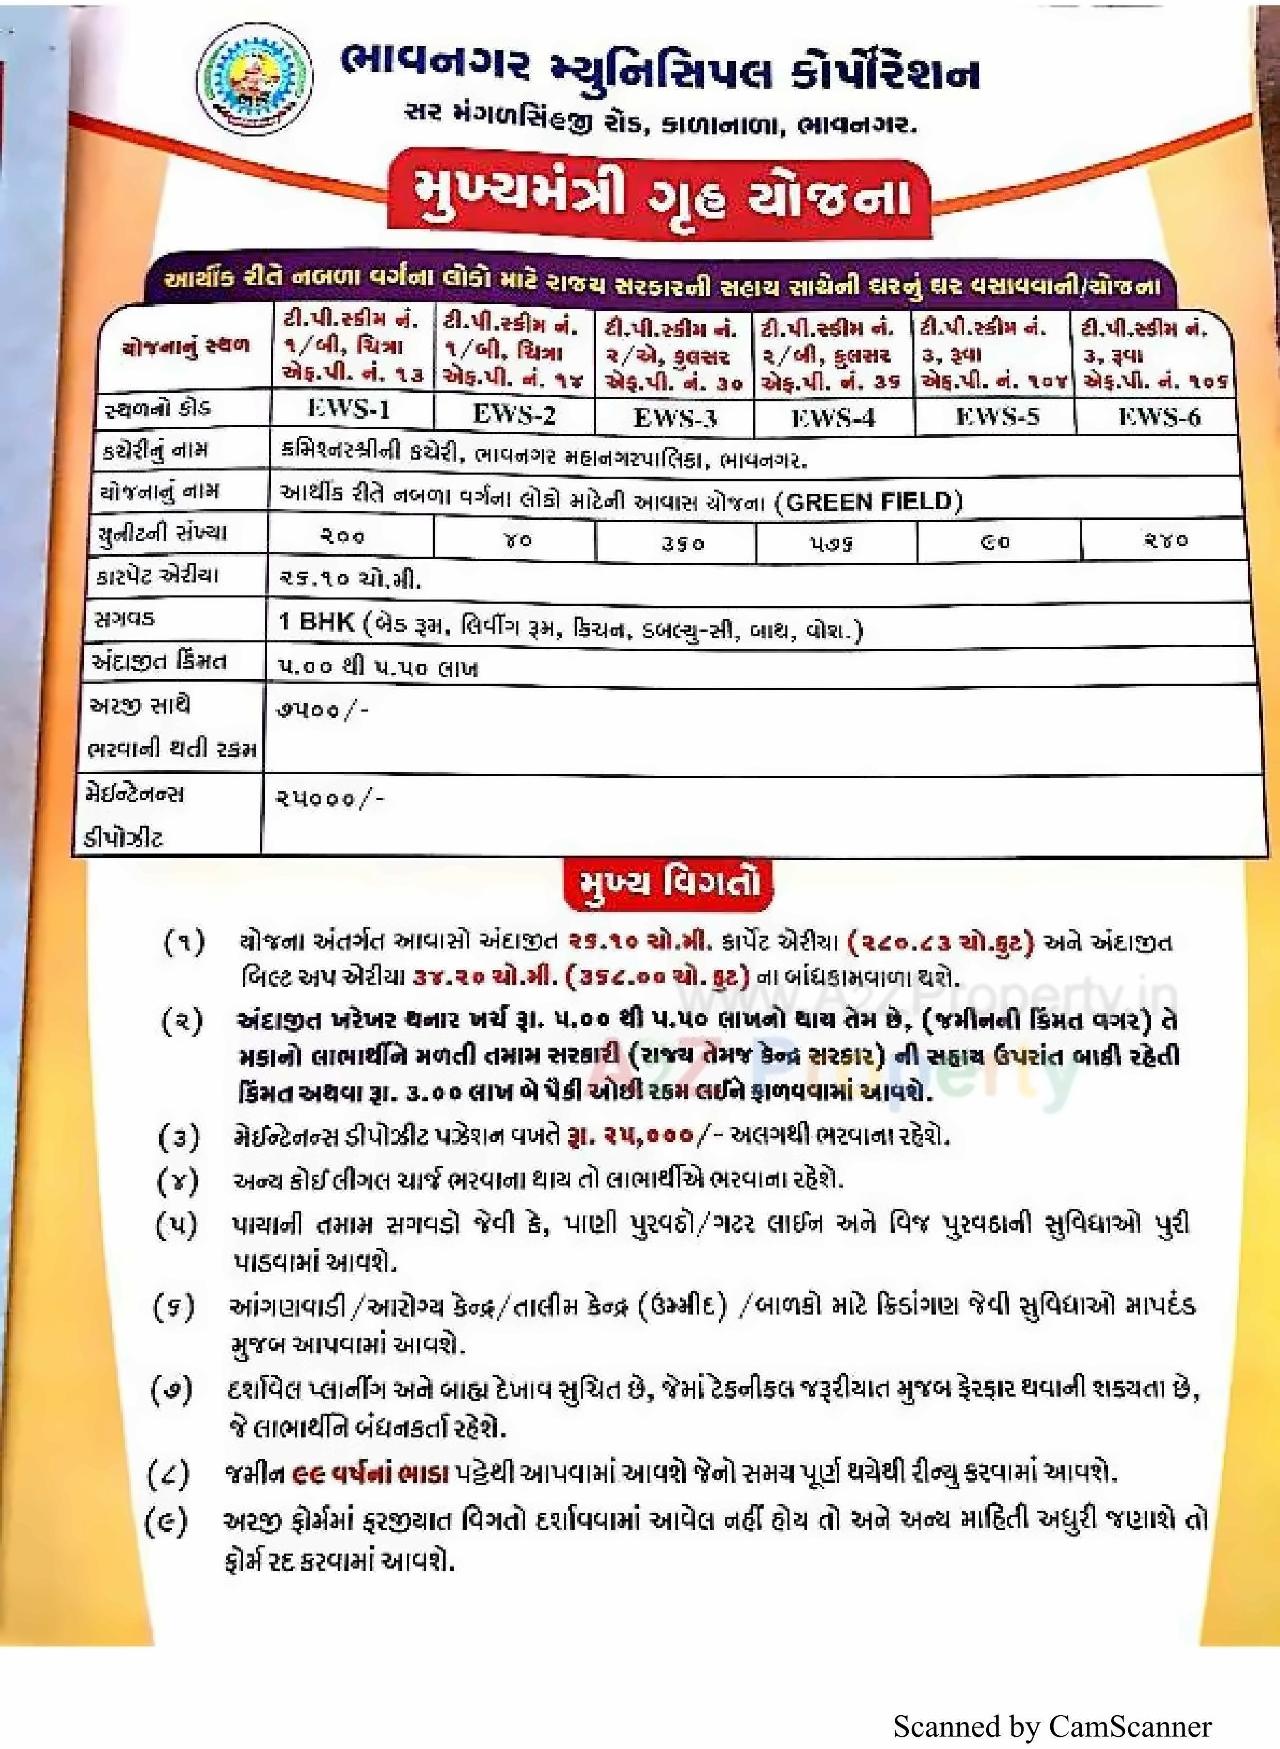 ભાવનગર મ્યુનિસિપલ કોર્પોરેશન
સર મંગળસિંહજી રોડ, કાળાનાળા, ભાવનગર.
મુખ્યમંત્રી ગૃહ યોજના
આર્થીક રીતે નબળા વર્ગના લોકો માટે રાજ્ય સરકારની સહાય સાથેની ઘરનું ઘર વસાવવાની/યોજના
યોજનાનું સ્થળ
ટી.પી.સ્કીમ નં. ૧/બી, ચિત્રા એફ.પી. નં. ૧૩
ટી.પી.સ્કીમ નં. ૧/બી, ચિત્રા એફ.પી. નં. ૧૪
ટી.પી.સ્કીમ નં. ૨/એ, ફુલસર એફ.પી. નં. ૩૦
ટી.પી.સ્કીમ નં. ૨/બી, ફુલસર એફ.પી. નં. ૩૬
ટી.પી.સ્કીમ નં. ૩, રૂવા એફ.પી. નં. ૧૦૪
ટી.પી.સ્કીમ નં. ૩, રૂવા એફ.પી. નં. ૧૦૬
સ્થળનો કોડ EWS-1 EWS-2 EWS-3 EWS-4 EWS-5 EWS-6
કચેરીનું નામ કમિશ્નરશ્રીની કચેરી, ભાવનગર મહાનગરપાલિકા, ભાવનગર.
યોજનાનું નામ આર્થીક રીતે નબળા વર્ગના લોકો માટેની આવાસ યોજના (GREEN FIELD)
યુનીટની સંખ્યા ૨૦૦ ૪૦ ૩૬૦ ૫૭૬ ૯૦ ૨૪૦
કારપેટ એરીયા ૨૬.૧૦ ચો.મી.
સગવડ 1 BHK (બેડ રૂમ, લિવીંગ રૂમ, કિચન, ડબલ્યુ-સી, બાથ, વોશ.)
અંદાજીત કિંમત ૫.૦૦ થી ૫.૫૦ લાખ
અરજી સાથે ૭૫૦૦/-
ભરવાની થતી રકમ
મેઈન્ટેનન્સ ૨૫૦૦૦/-
ડીપોઝીટ
મુખ્ય વિગતો
(૧) યોજના અંતર્ગત આવાસો અંદાજીત ૨૬.૧૦ ચો.મી. કાર્પેટ એરીયા (૨૮૦.૮૩ ચો.ફુટ) અને અંદાજીત
બિલ્ટ અપ એરીયા ૩૪.૨૦ ચો.મી. (૩૬૮.૦૦ ચો. ફુટ) ના બાંધકામવાળા થશે.
(૨) અંદાજીત ખરેખર થનાર ખર્ચ રૂા. ૫.૦૦ થી ૫.૫૦ લાખનો થાય તેમ છે, (જમીનની કિંમત વગર) તે
મકાનો લાભાર્થીને મળતી તમામ સરકારી (રાજ્ય તેમજ કેન્દ્ર સરકાર) ની સહાય ઉપરાંત બાકી રહેતી
કિંમત અથવા રૂા. ૩.૦૦ લાખ બે પૈકી ઓછી રકમ લઈને ફાળવવામાં આવશે.
(૩) મેઈન્ટેનન્સ ડીપોઝીટ પઝેશન વખતે રૂા. ૨૫,૦૦૦/- અલગથી ભરવાના રહેશે.
(૪) અન્ય કોઈ લીગલ ચાર્જ ભરવાના થાય તો લાભાર્થીએ ભરવાના રહેશે.
(૫) પાયાની તમામ સગવડો જેવી કે, પાણી પુરવઠો/ગટર લાઈન અને વિજ પુરવઠાની સુવિધાઓ પુરી
પાડવામાં આવશે.
(૬) આંગણવાડી/આરોગ્ય કેન્દ્ર/તાલીમ કેન્દ્ર (ઉમ્મીદ) /બાળકો માટે ક્રિડાંગણ જેવી સુવિધાઓ માપદંડ
મુજબ આપવામાં આવશે.
(૭) દર્શાવેલ પ્લાનીંગ અને બાહ્ય દેખાવ સુચિત છે, જેમાં ટેકનીકલ જરૂરીયાત મુજબ ફેરફાર થવાની શક્યતા છે,
જે લાભાર્થીને બંધનકર્તા રહેશે.
(૮) જમીન ૯૯ વર્ષનાં ભાડા પટ્ટેથી આપવામાં આવશે જેનો સમય પૂર્ણ થયેથી રીન્યુ કરવામાં આવશે.
(૯) અરજી ફોર્મમાં ફરજીયાત વિગતો દર્શાવવામાં આવેલ નહીં હોય તો અને અન્ય માહિતી અધુરી જણાશે તો
ફોર્મ રદ કરવામાં આવશે.
www.A2ZProperty.in
A2Z Property
Scanned by CamScanner